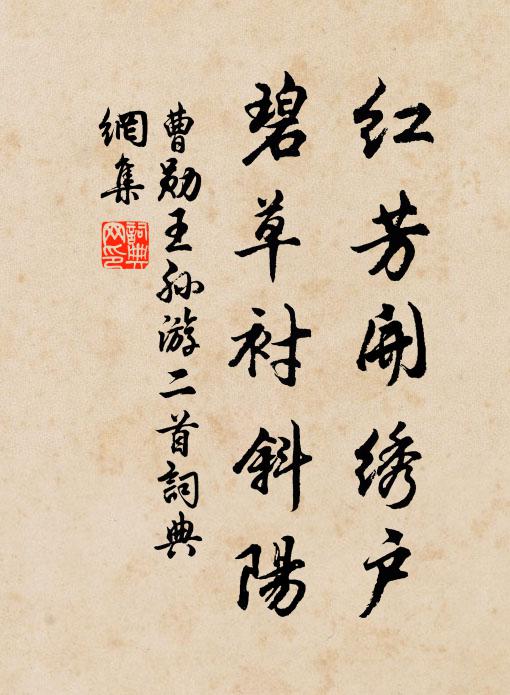 红芳開绣户
碧草衬斜陽
曹勋王孙游二首詞典
網集
詞典
网印